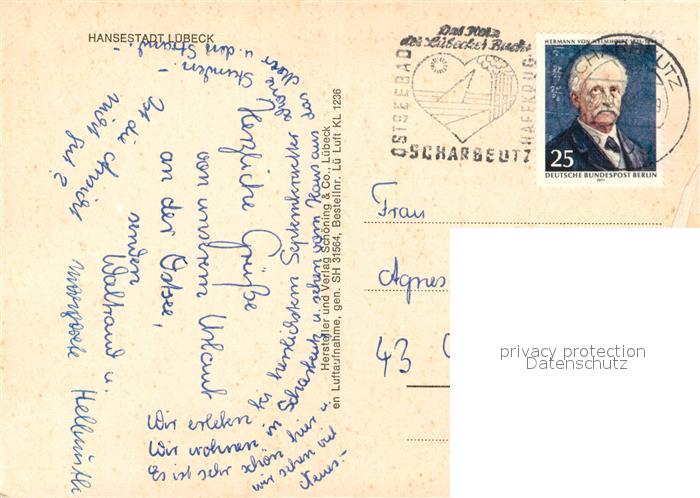 HANSESTADT LÜBECK
Das Herz
der Lübecker Bucht
OSTSEEBAD
HAFFKRUG
SCHARBEUTZ
HERMANN VON HELMHOLTZ 1821-1894
25
DEUTSCHE BUNDESPOST BERLIN
1971
Hersteller und Verlag Schöning & Co., Lübeck
en Luftaufnahme, gen. SH 31564, Bestellnr. Lü Luft KL 1236
Frau
Agnes
43
privacy protection
Datenschutz
Herzliche Grüße
von unserem Urlaub
an der Ostsee,
senden
Waltraud u.
Hellmuth
Wir erleben
Wir wohnen in Scharbeutz u. sehen vom Haus aus das Meer u. den Strand.-
Es ist sehr schön hier u.
wir sehen viel
Neues.-
schöne Stunden.-
Ist die